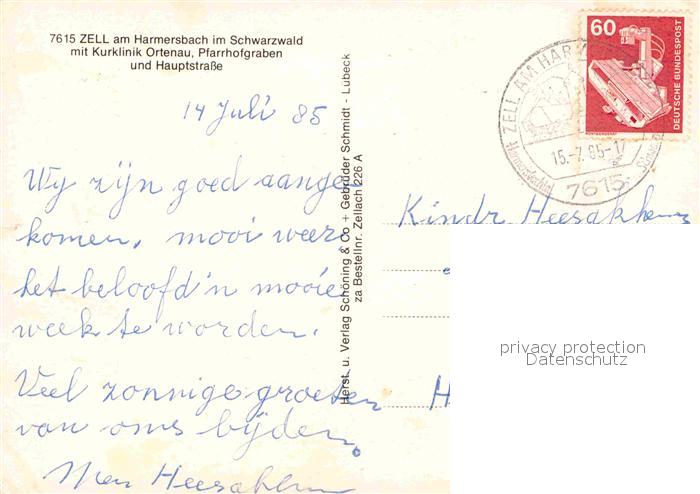 7615 ZELL am Harmersbach im Schwarzwald
mit Kurklinik Ortenau, Pfarrhofgraben
und Hauptstraße
14 Juli 85
Wy zijn goed aange
komen, mooi weer,
het beloofd 'n mooie
week te worden.
Veel zonnige groeten
van ons bijden.
Heesakkers
Herst. u. Verlag Schöning & Co + Gebrüder Schmidt - Lübeck
za Bestellnr. Zellach 226 A
60
DEUTSCHE BUNDESPOST
ZELL AM HAR
15.-7.85-17
7615
Kindr Heesakkers
H
privacy protection
Datenschutz